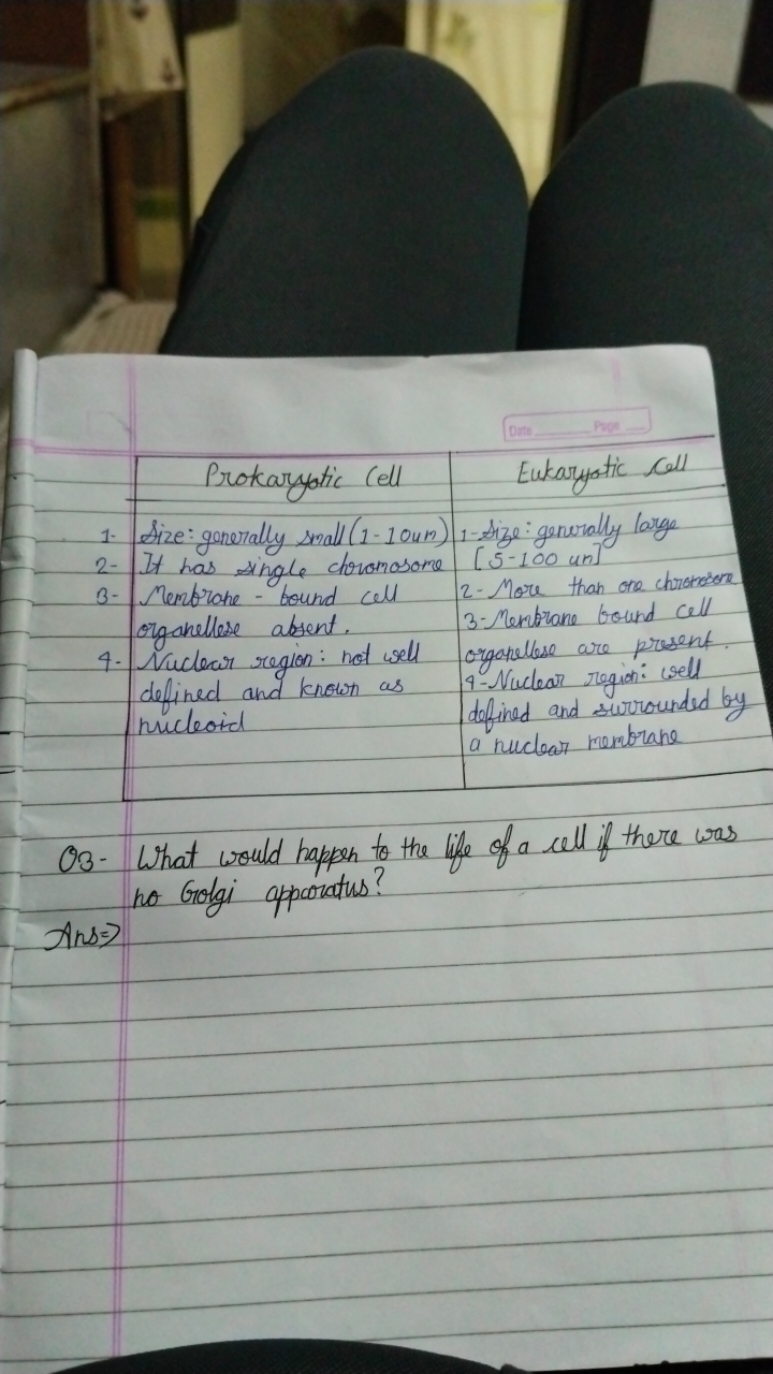 Date Page
Prokaryotic Cell Eukaryotic Cell
1- Size: generally small (1-10um) 1-Size: generally large
[5-100 um]
2- It has single chromosome 2- More than one chromosome
3- Membrane - bound cell 3-Membrane bound cell
organellese absent. organellese are present.
4- Nuclear region: not well 4-Nuclear region: well
defined and known as defined and surrounded by
nucleoid a nuclear membrane
Q3- What would happen to the life of a cell if there was
no Golgi apparatus?
Ans=>